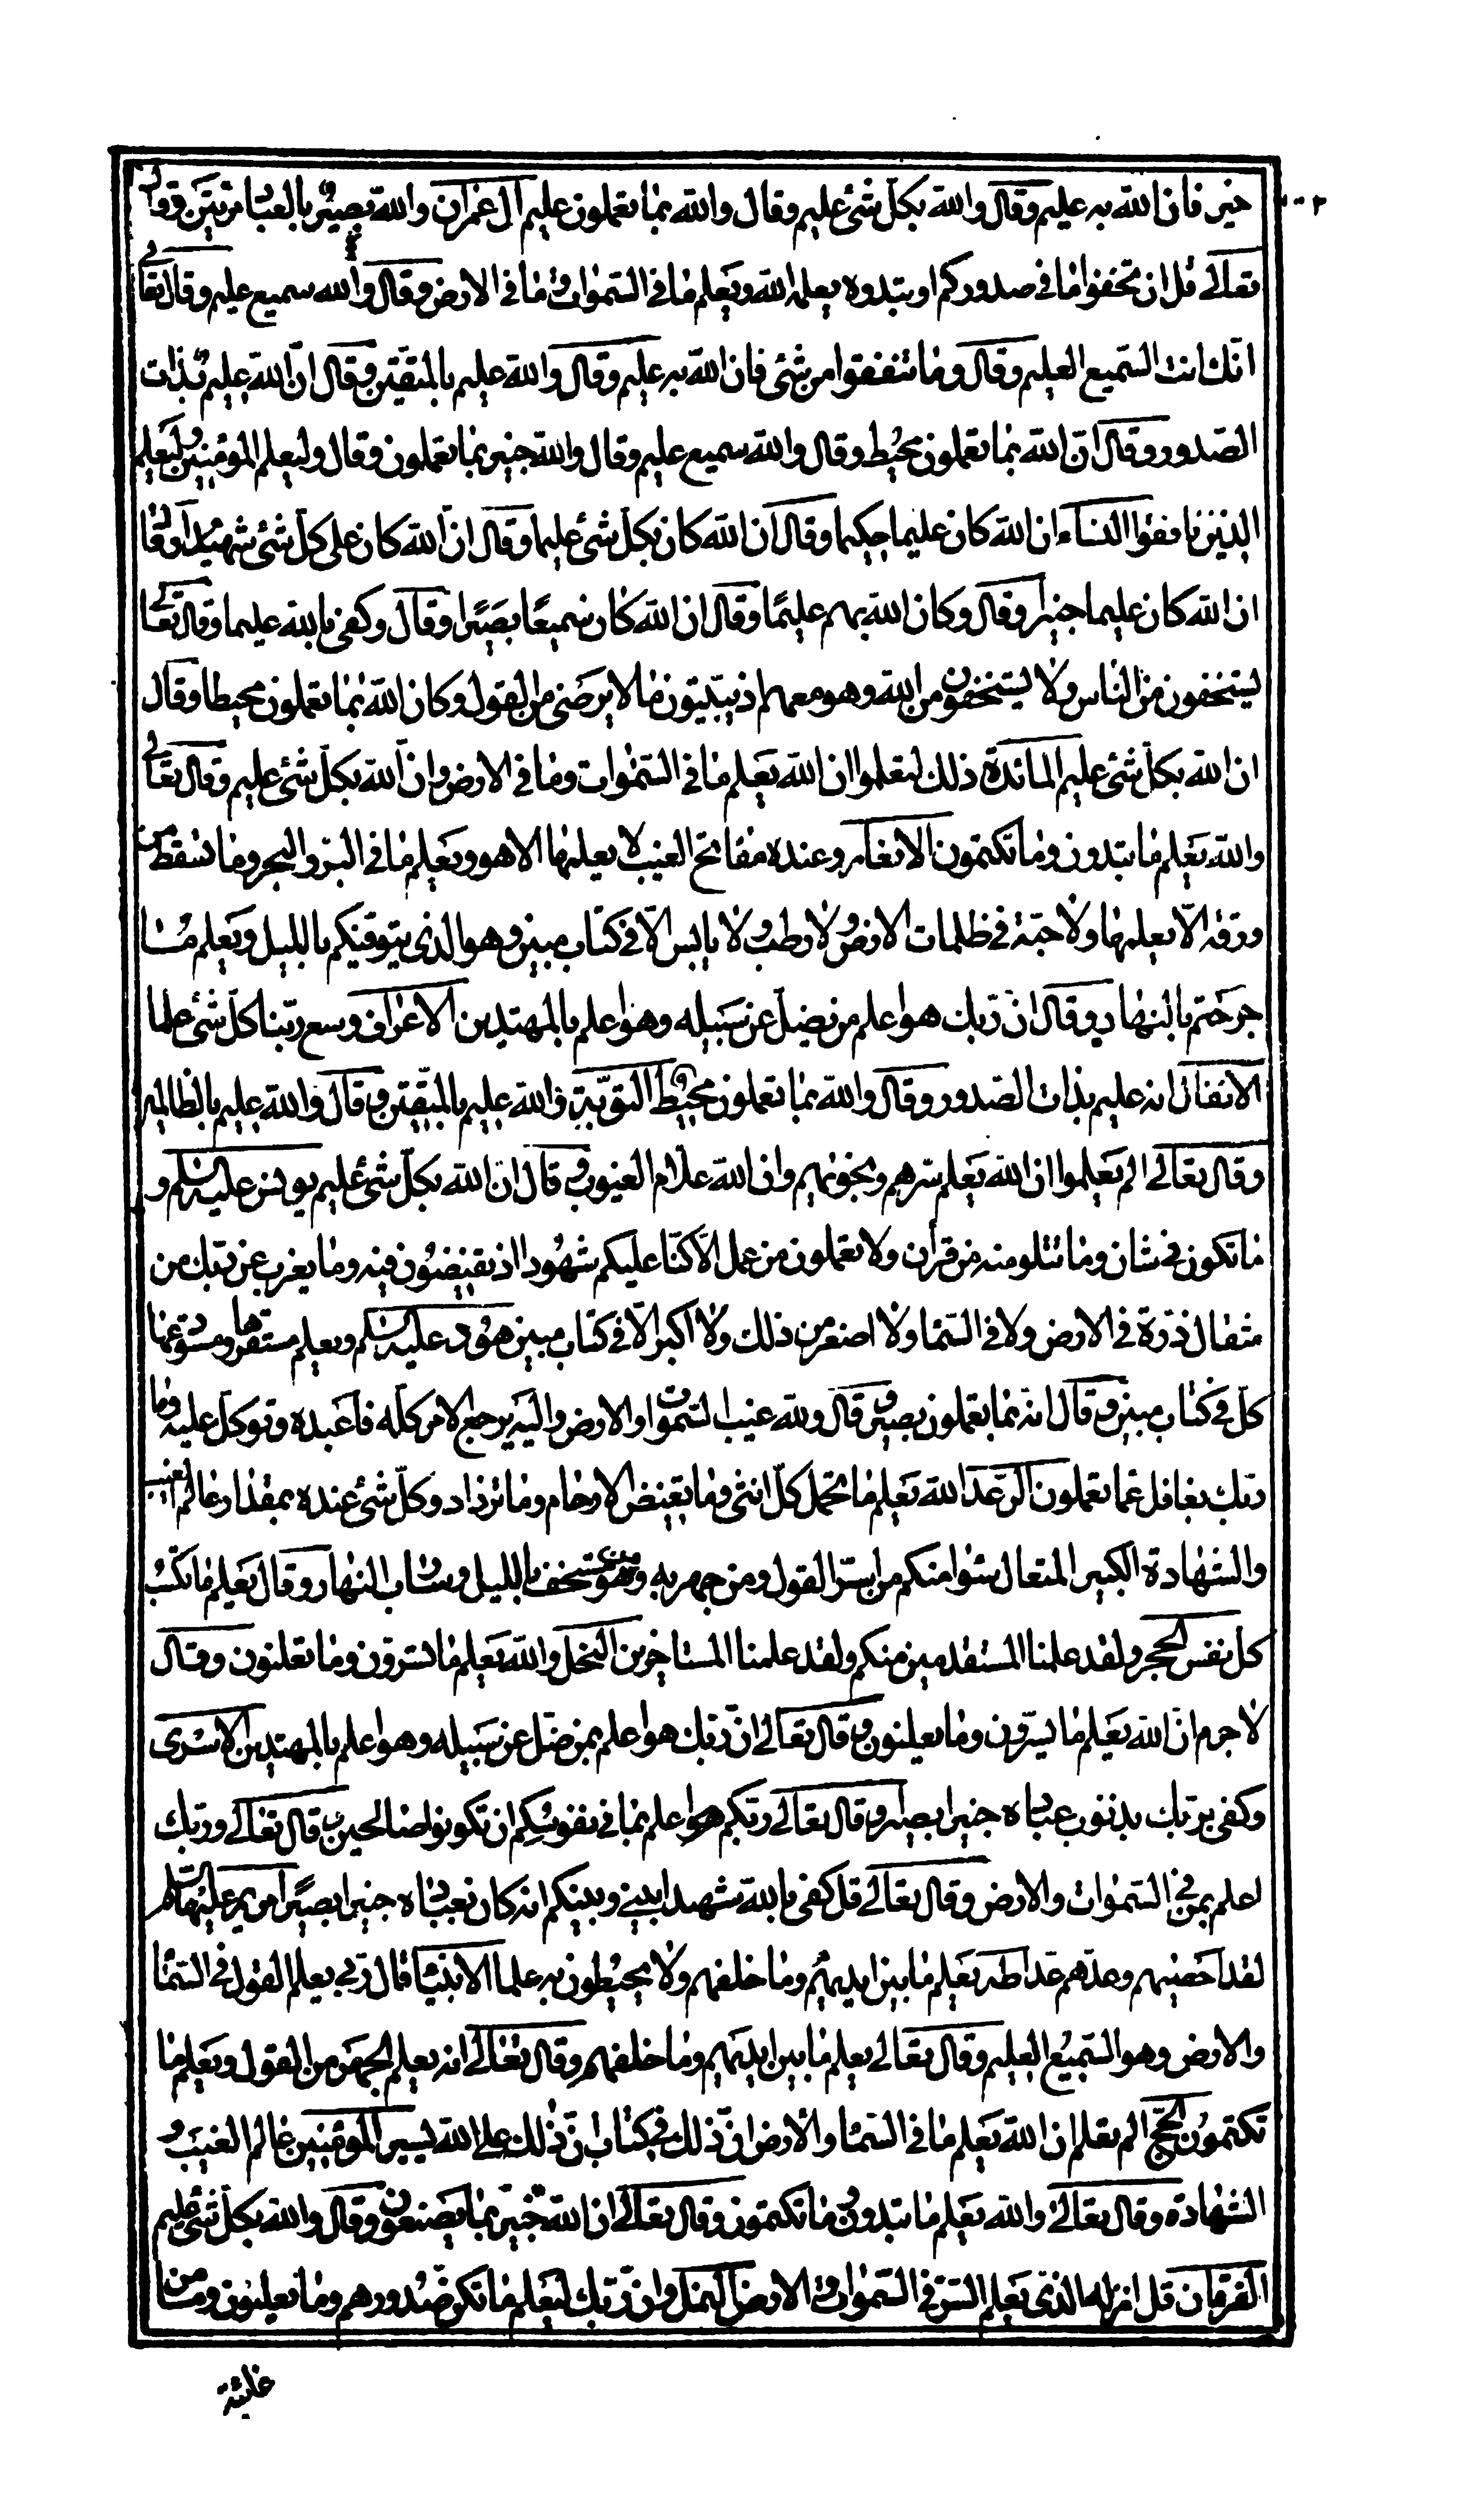 خير فان الله به عليم وقال والله بكل شئ عليم وقال والله بما تعملون عليم آل عمران والله بصير بالعباد مرتين وقال
تعالى قل ان تخفوا ما فى صدوركم او تبدوه يعلمه الله ويعلم ما فى السموات وما فى الارض وقال والله سميع عليم وقال تعالى
انك انت السميع العليم وقال وما تنفقوا من شئ فان الله به عليم وقال والله عليم بالمتقين وقال ان الله عليم بذات
الصدور وقال ان الله بما تعملون محيط وقال والله سميع عليم وقال والله خبير بما تعملون وقال وليعلم المؤمنين وليعلم
الذين نافقوا النساء ان الله كان عليما حكيما وقال ان الله كان بكل شئ عليما وقال ان الله كان على كل شئ شهيدا وقال
ان الله كان عليما خبيرا وقال وكان الله بهم عليما وقال ان الله كان سميعا بصيرا وقال وكفى بالله عليما وقال تعالى
يستخفون من الناس ولا يستخفون من الله وهو معهم اذ يبيتون ما لا يرضى من القول وكان الله بما تعملون محيطا وقال
ان الله بكل شئ عليم المائدة ذلك لتعلموا ان الله يعلم ما فى السموات وما فى الارض وان الله بكل شئ عليم وقال تعالى
والله يعلم ما تبدون وما تكتمون الانعام وعنده مفاتح الغيب لا يعلمها الا هو ويعلم ما فى البر والبحر وما تسقط من
ورقة الا يعلمها ولا حبة فى ظلمات الارض ولا رطب ولا يابس الا فى كتاب مبين وهو الذى يتوفيكم بالليل ويعلم ما
جرحتم بالنهار وقال ان ربك هو اعلم من يضل عن سبيله وهو اعلم بالمهتدين الاعراف وسع ربنا كل شئ علما
الانفال انه عليم بذات الصدور وقال والله بما تعملون محيط التوبة والله عليم بالمتقين وقال والله عليم بالظالمين
وقال تعالى الم يعلموا ان الله يعلم سرهم ونجويهم وان الله علام الغيوب وقال ان الله بكل شئ عليم يونس عليه السلم و
ما تكون فى شان وما تتلو منه من قرآن ولا تعملون من عمل الا كنا عليكم شهودا اذ تفيضون فيه وما يعزب عن ربك من
مثقال ذرة فى الارض ولا فى السماء ولا اصغر من ذلك ولا اكبر الا فى كتاب مبين هود عليه السلم ويعلم مستقرها ومستودعها
كل فى كتاب مبين وقال انه بما يعملون بصير وقال ولله غيب السموات والارض واليه يرجع الامر كله فاعبده وتوكل عليه وما
ربك بغافل عما تعملون الرعد الله يعلم ما تحمل كل انثى وما تغيض الارحام وما تزداد وكل شئ عنده بمقدار عالم الغيب
والشهادة الكبير المتعال سواء منكم من اسر القول ومن جهر به ومن هو مستخف بالليل وسارب بالنهار وقال يعلم ما تكسب
كل نفس الحجر ولقد علمنا المستقدمين منكم ولقد علمنا المستاخرين النحل والله يعلم ما تسرون وما تعلنون وقال
لا جرم ان الله يعلم ما يسرون وما يعلنون وقال تعالى ان ربك هو اعلم بمن ضل عن سبيله وهو اعلم بالمهتدين الاسرى
وكفى بربك بذنوب عباده خبيرا بصيرا وقال تعالى ربكم هو اعلم بما فى نفوسكم ان تكونوا صالحين وقال تعالى وربك
اعلم بمن فى السموات والارض وقال تعالى قل كفى بالله شهيدا بينى وبينكم انه كان بعباده خبيرا بصيرا مريم عليها السلم
لقد احصيهم وعدهم عدا طه يعلم ما بين ايديهم وما خلفهم ولا يحيطون به علما الانبياء قال ربى يعلم القول فى السماء
والارض وهو السميع العليم وقال تعالى يعلم ما بين ايديهم وما خلفهم وقال تعالى انه يعلم الجهر من القول ويعلم ما
تكتمون الحج الم تعلم ان الله يعلم ما فى السماء والارض ان ذلك فى كتاب ان ذلك على الله يسير المؤمنين عالم الغيب و
الشهادة وقال تعالى والله يعلم ما تبدون وما تكتمون وقال تعالى ان الله خبير بما يصنعون وقال والله بكل شئ عليم
الفرقان قل انزله الذى يعلم السر فى السموات والارض النمل وان ربك ليعلم ما تكن صدورهم وما يعلنون وما من
غائبة